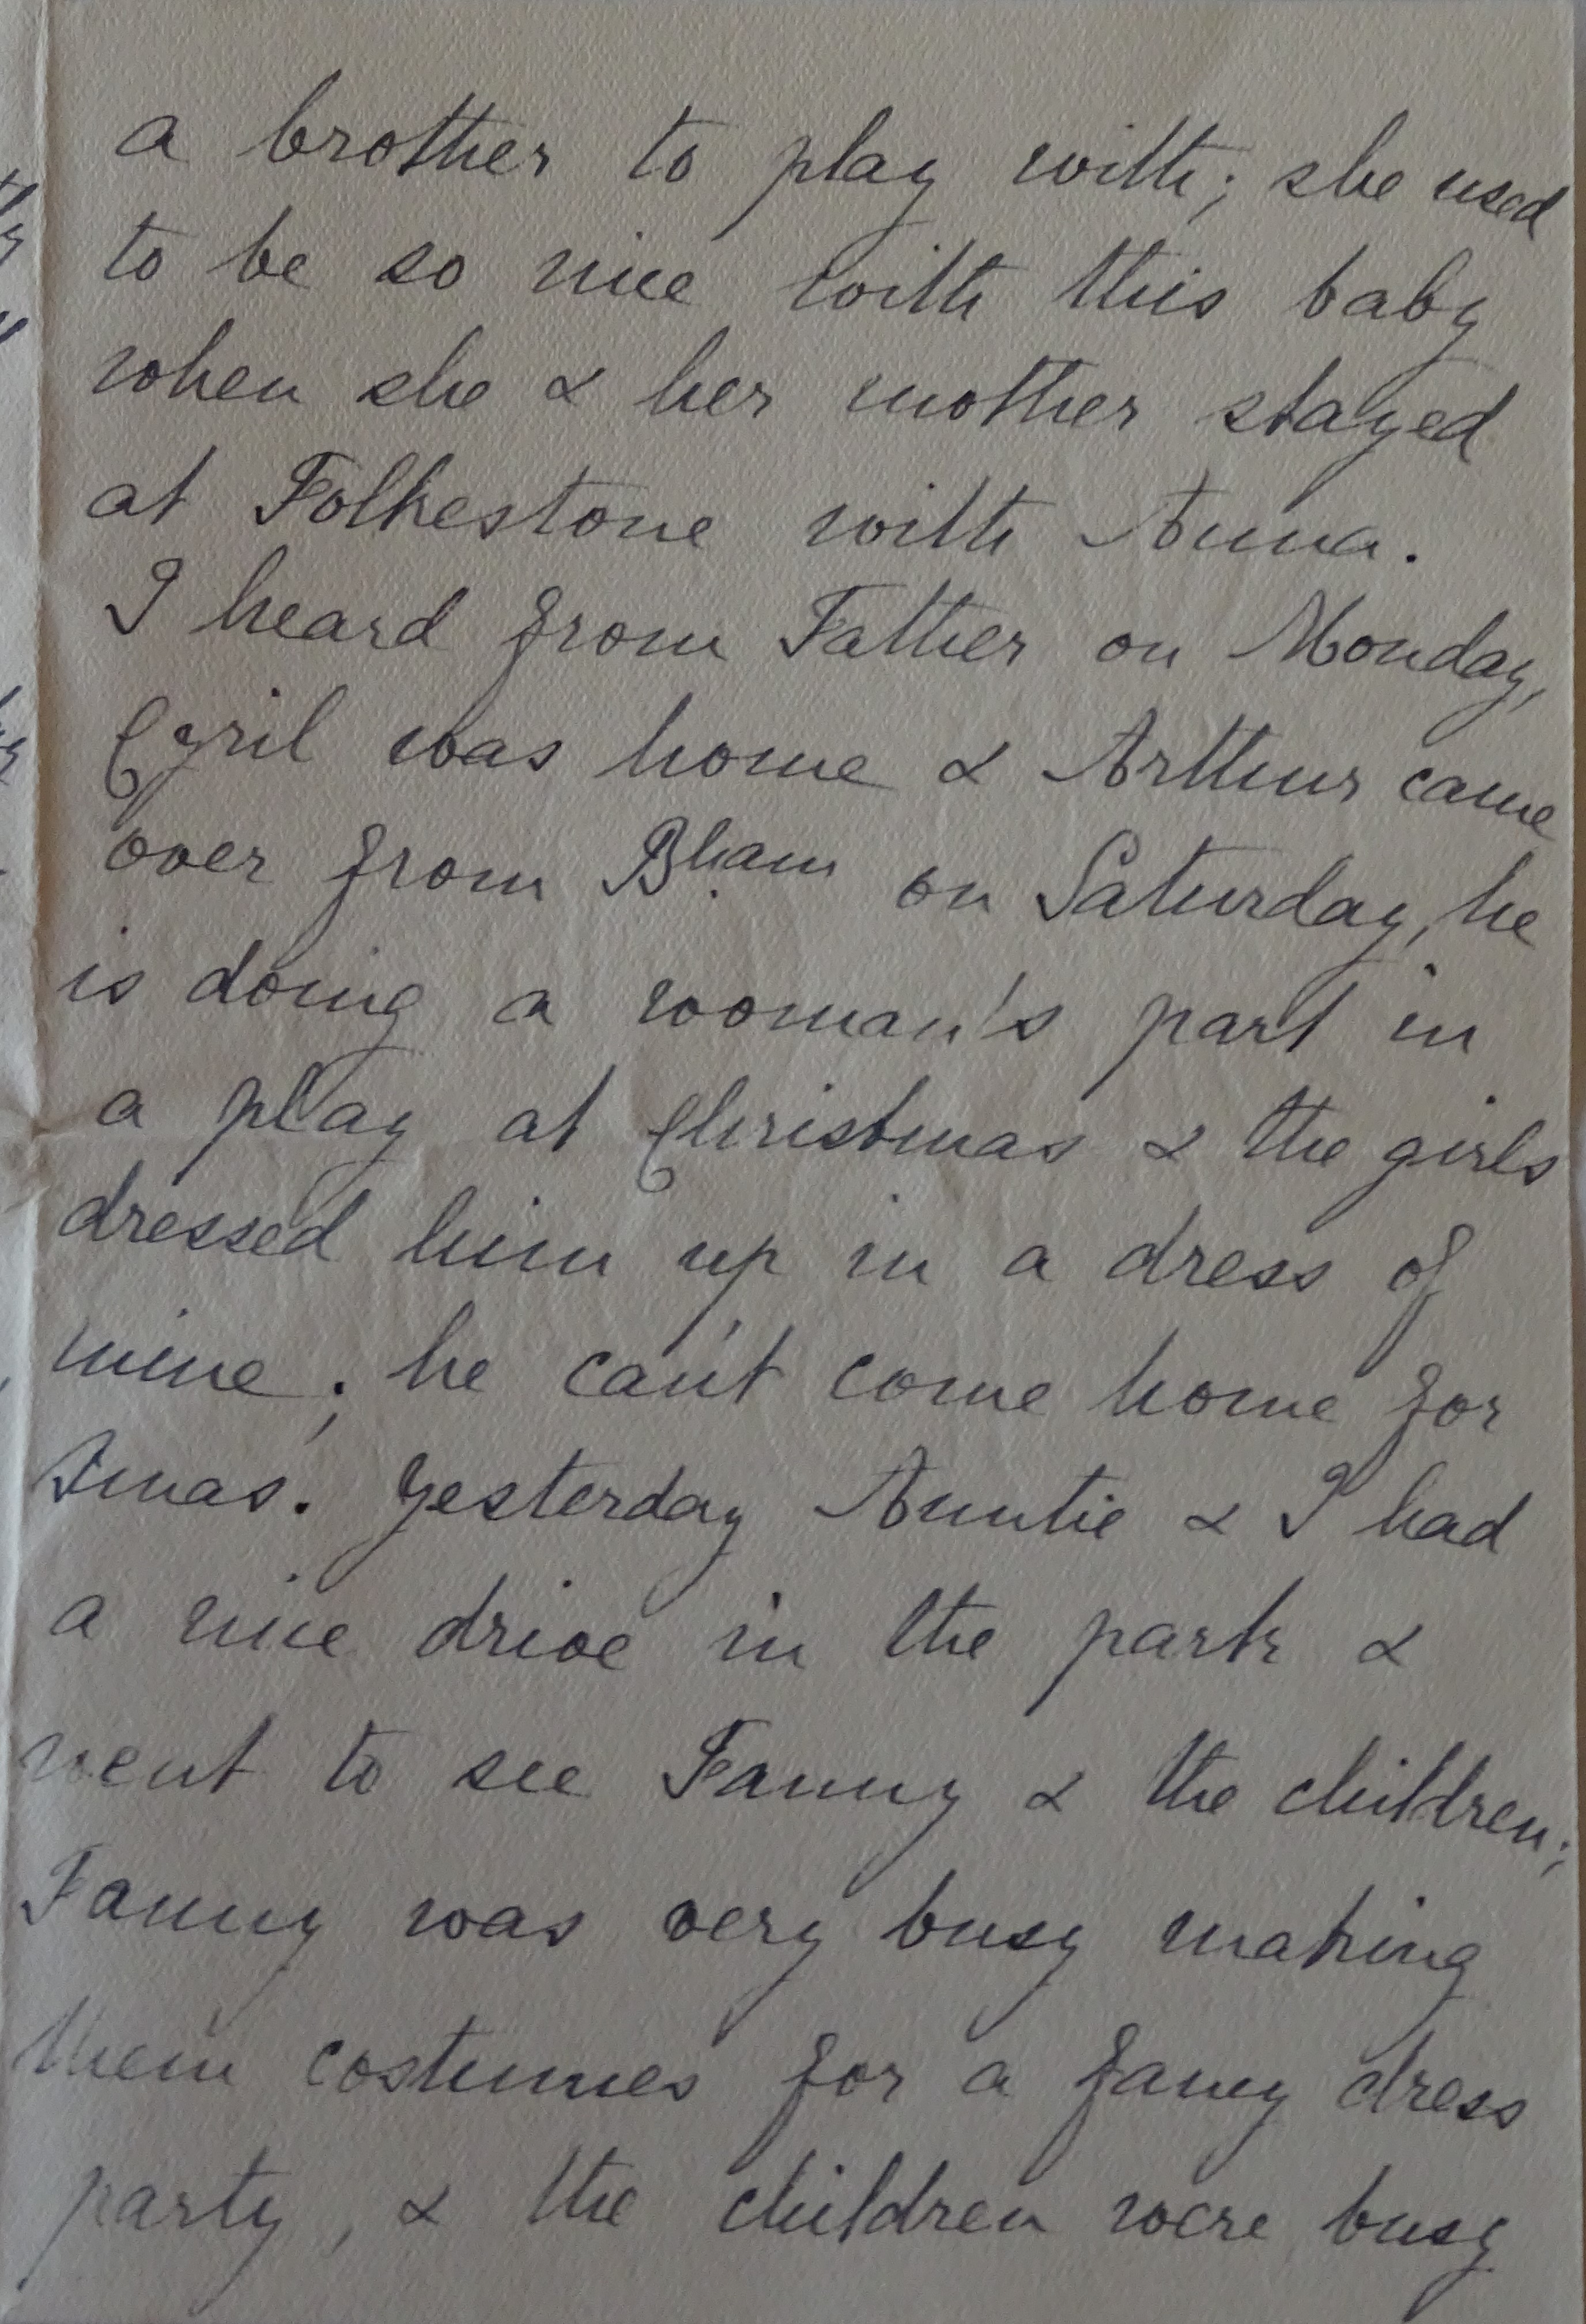 a brother to play with; she used
to be so nice with this baby
when she & her mother stayed
at Folkestone with Anna.
I heard from Father on Monday,
Cyril was home & Arthur came
over from Bham on Saturday, he
is doing a woman's part in
a play at Christmas & the girls
dressed him up in a dress of
mine; he can't come home for
Xmas. Yesterday Auntie & I had
a nice drive in the park &
went to see Fanny & the children;
Fanny was very busy making
them costumes for a fancy dress
party, & the children were busy